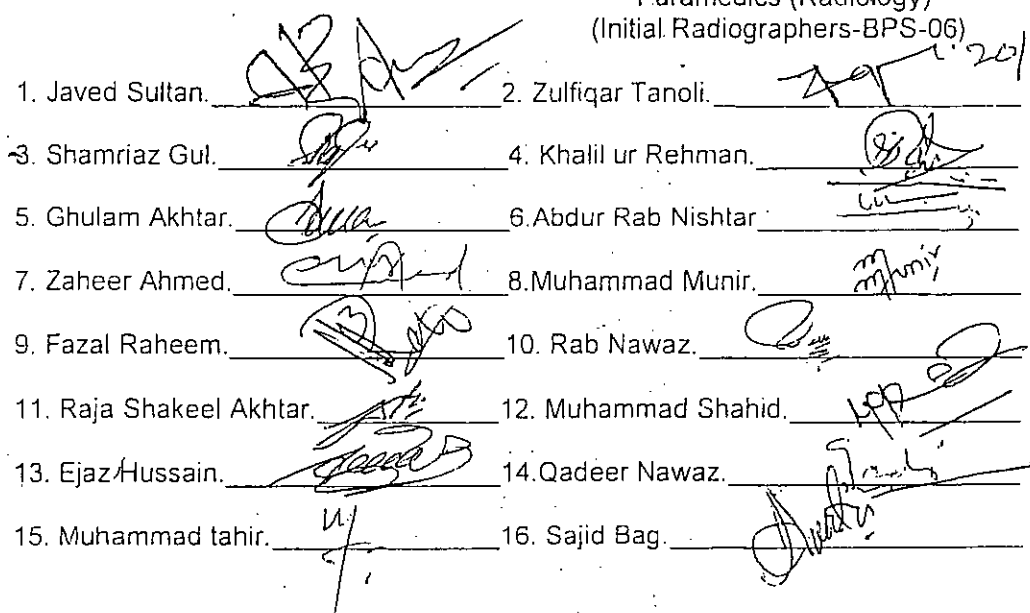 Paramedics (Radiology)
(Initial Radiographers-BPS-06)
1. Javed Sultan. 2. Zulfiqar Tanoli.
3. Shamriaz Gul. 4. Khalil ur Rehman.
5. Ghulam Akhtar. 6.Abdur Rab Nishtar
7. Zaheer Ahmed. 8.Muhammad Munir. Munir
9. Fazal Raheem. 10. Rab Nawaz.
11. Raja Shakeel Akhtar. 12. Muhammad Shahid.
13. Ejaz Hussain. 14.Qadeer Nawaz.
15. Muhammad tahir. 16. Sajid Bag.